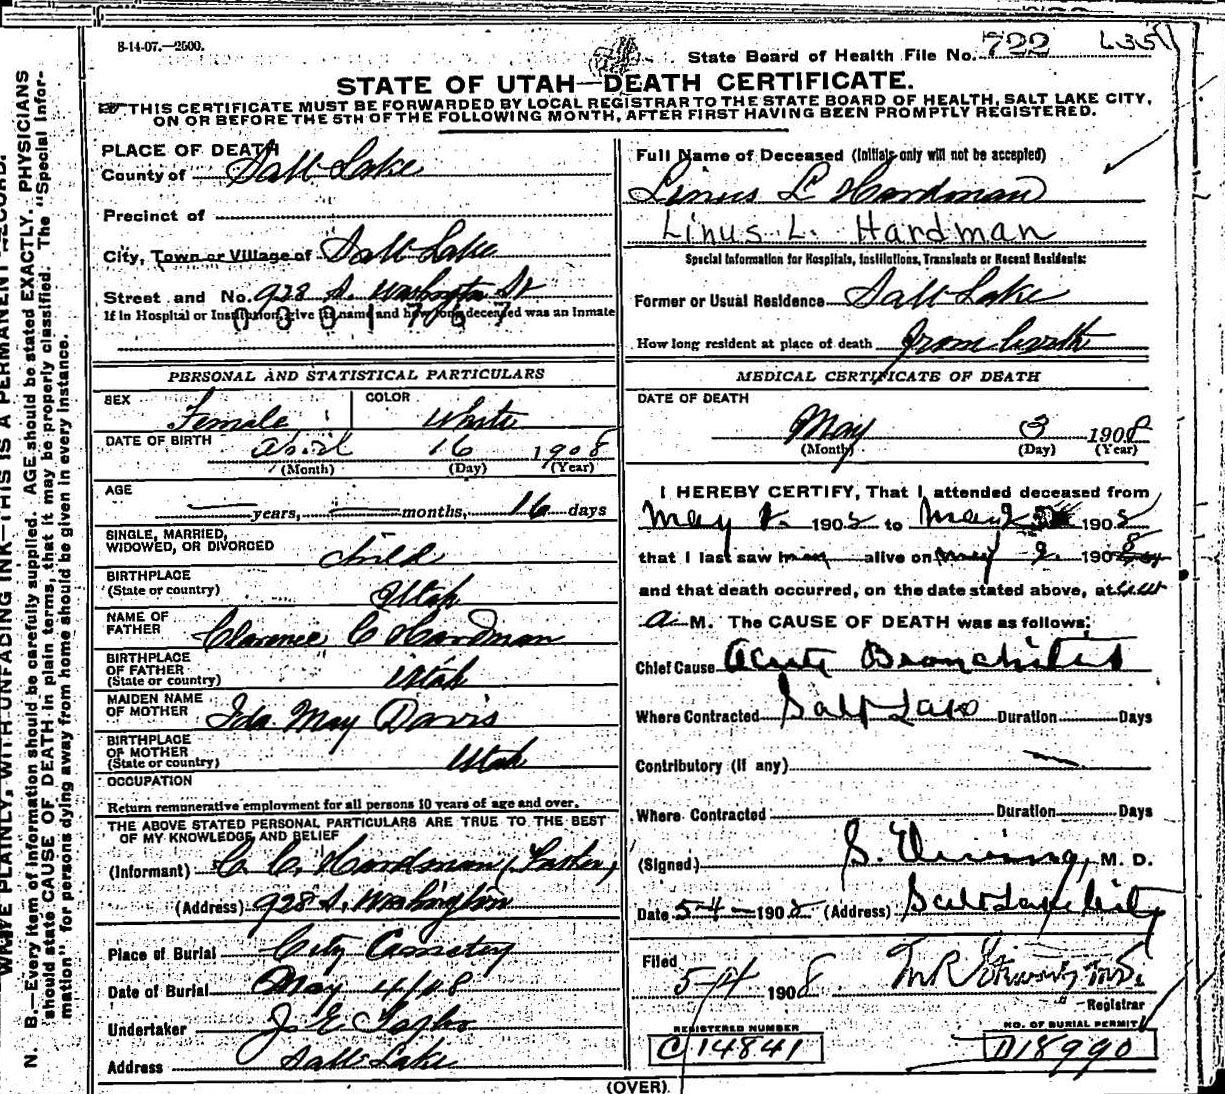 8-14-07.—2500.
State Board of Health File No. 722 L35
STATE OF UTAH—DEATH CERTIFICATE.
THIS CERTIFICATE MUST BE FORWARDED BY LOCAL REGISTRAR TO THE STATE BOARD OF HEALTH, SALT LAKE CITY,
ON OR BEFORE THE 5TH OF THE FOLLOWING MONTH, AFTER FIRST HAVING BEEN PROMPTLY REGISTERED.
PLACE OF DEATH
County of Salt Lake
Precinct of
City, Town or Village of Salt Lake
Street and No. 928 S. Washington St
If in Hospital or Institution, give its name and how long deceased was an Inmate
PERSONAL AND STATISTICAL PARTICULARS
SEX Female COLOR White
DATE OF BIRTH April 16 1908
(Month) (Day) (Year)
AGE
years, months, 16 days
SINGLE, MARRIED,
WIDOWED, OR DIVORCED child
BIRTHPLACE
(State or country) Utah
NAME OF
FATHER Clarence C Hardman
BIRTHPLACE
OF FATHER
(State or country) Utah
MAIDEN NAME
OF MOTHER Ida May Davis
BIRTHPLACE
OF MOTHER
(State or country) Utah
OCCUPATION
Return remunerative employment for all persons 10 years of age and over.
THE ABOVE STATED PERSONAL PARTICULARS ARE TRUE TO THE BEST
OF MY KNOWLEDGE AND BELIEF
(Informant) C. C. Hardman (Father)
(Address) 928 S. Washington
Place of Burial City Cemetery
Date of Burial May 4/08
Undertaker J. E. Taylor
Address Salt Lake
Full Name of Deceased (Initials only will not be accepted)
Linus L Hardman
Linus L. Hardman
Special Information for Hospitals, Institutions, Transients or Recent Residents:
Former or Usual Residence Salt Lake
How long resident at place of death from birth
MEDICAL CERTIFICATE OF DEATH
DATE OF DEATH
May 3 1908
(Month) (Day) (Year)
I HEREBY CERTIFY, That I attended deceased from
May 1908 to May 2 1908
that I last saw him alive on May 2. 1908
and that death occurred, on the date stated above, at
a M. The CAUSE OF DEATH was as follows:
Chief Cause Acute Bronchitis
Where Contracted Salt Lake Duration Days
Contributory (if any)
Where Contracted Duration Days
(Signed) S. Ewing, M. D.
Date 5-4-1908 (Address) Salt Lake City
Filed
5-4 1908
Registrar
REGISTERED NUMBER
C 14841
NO. OF BURIAL PERMIT
D18990
(OVER)
WRITE PLAINLY, WITH UNFADING INK—THIS IS A PERMANENT RECORD.
N. B.—Every item of information should be carefully supplied. AGE should be stated EXACTLY. PHYSICIANS
should state CAUSE OF DEATH in plain terms, that it may be properly classified. The "Special Infor-
mation" for persons dying away from home should be given in every instance.